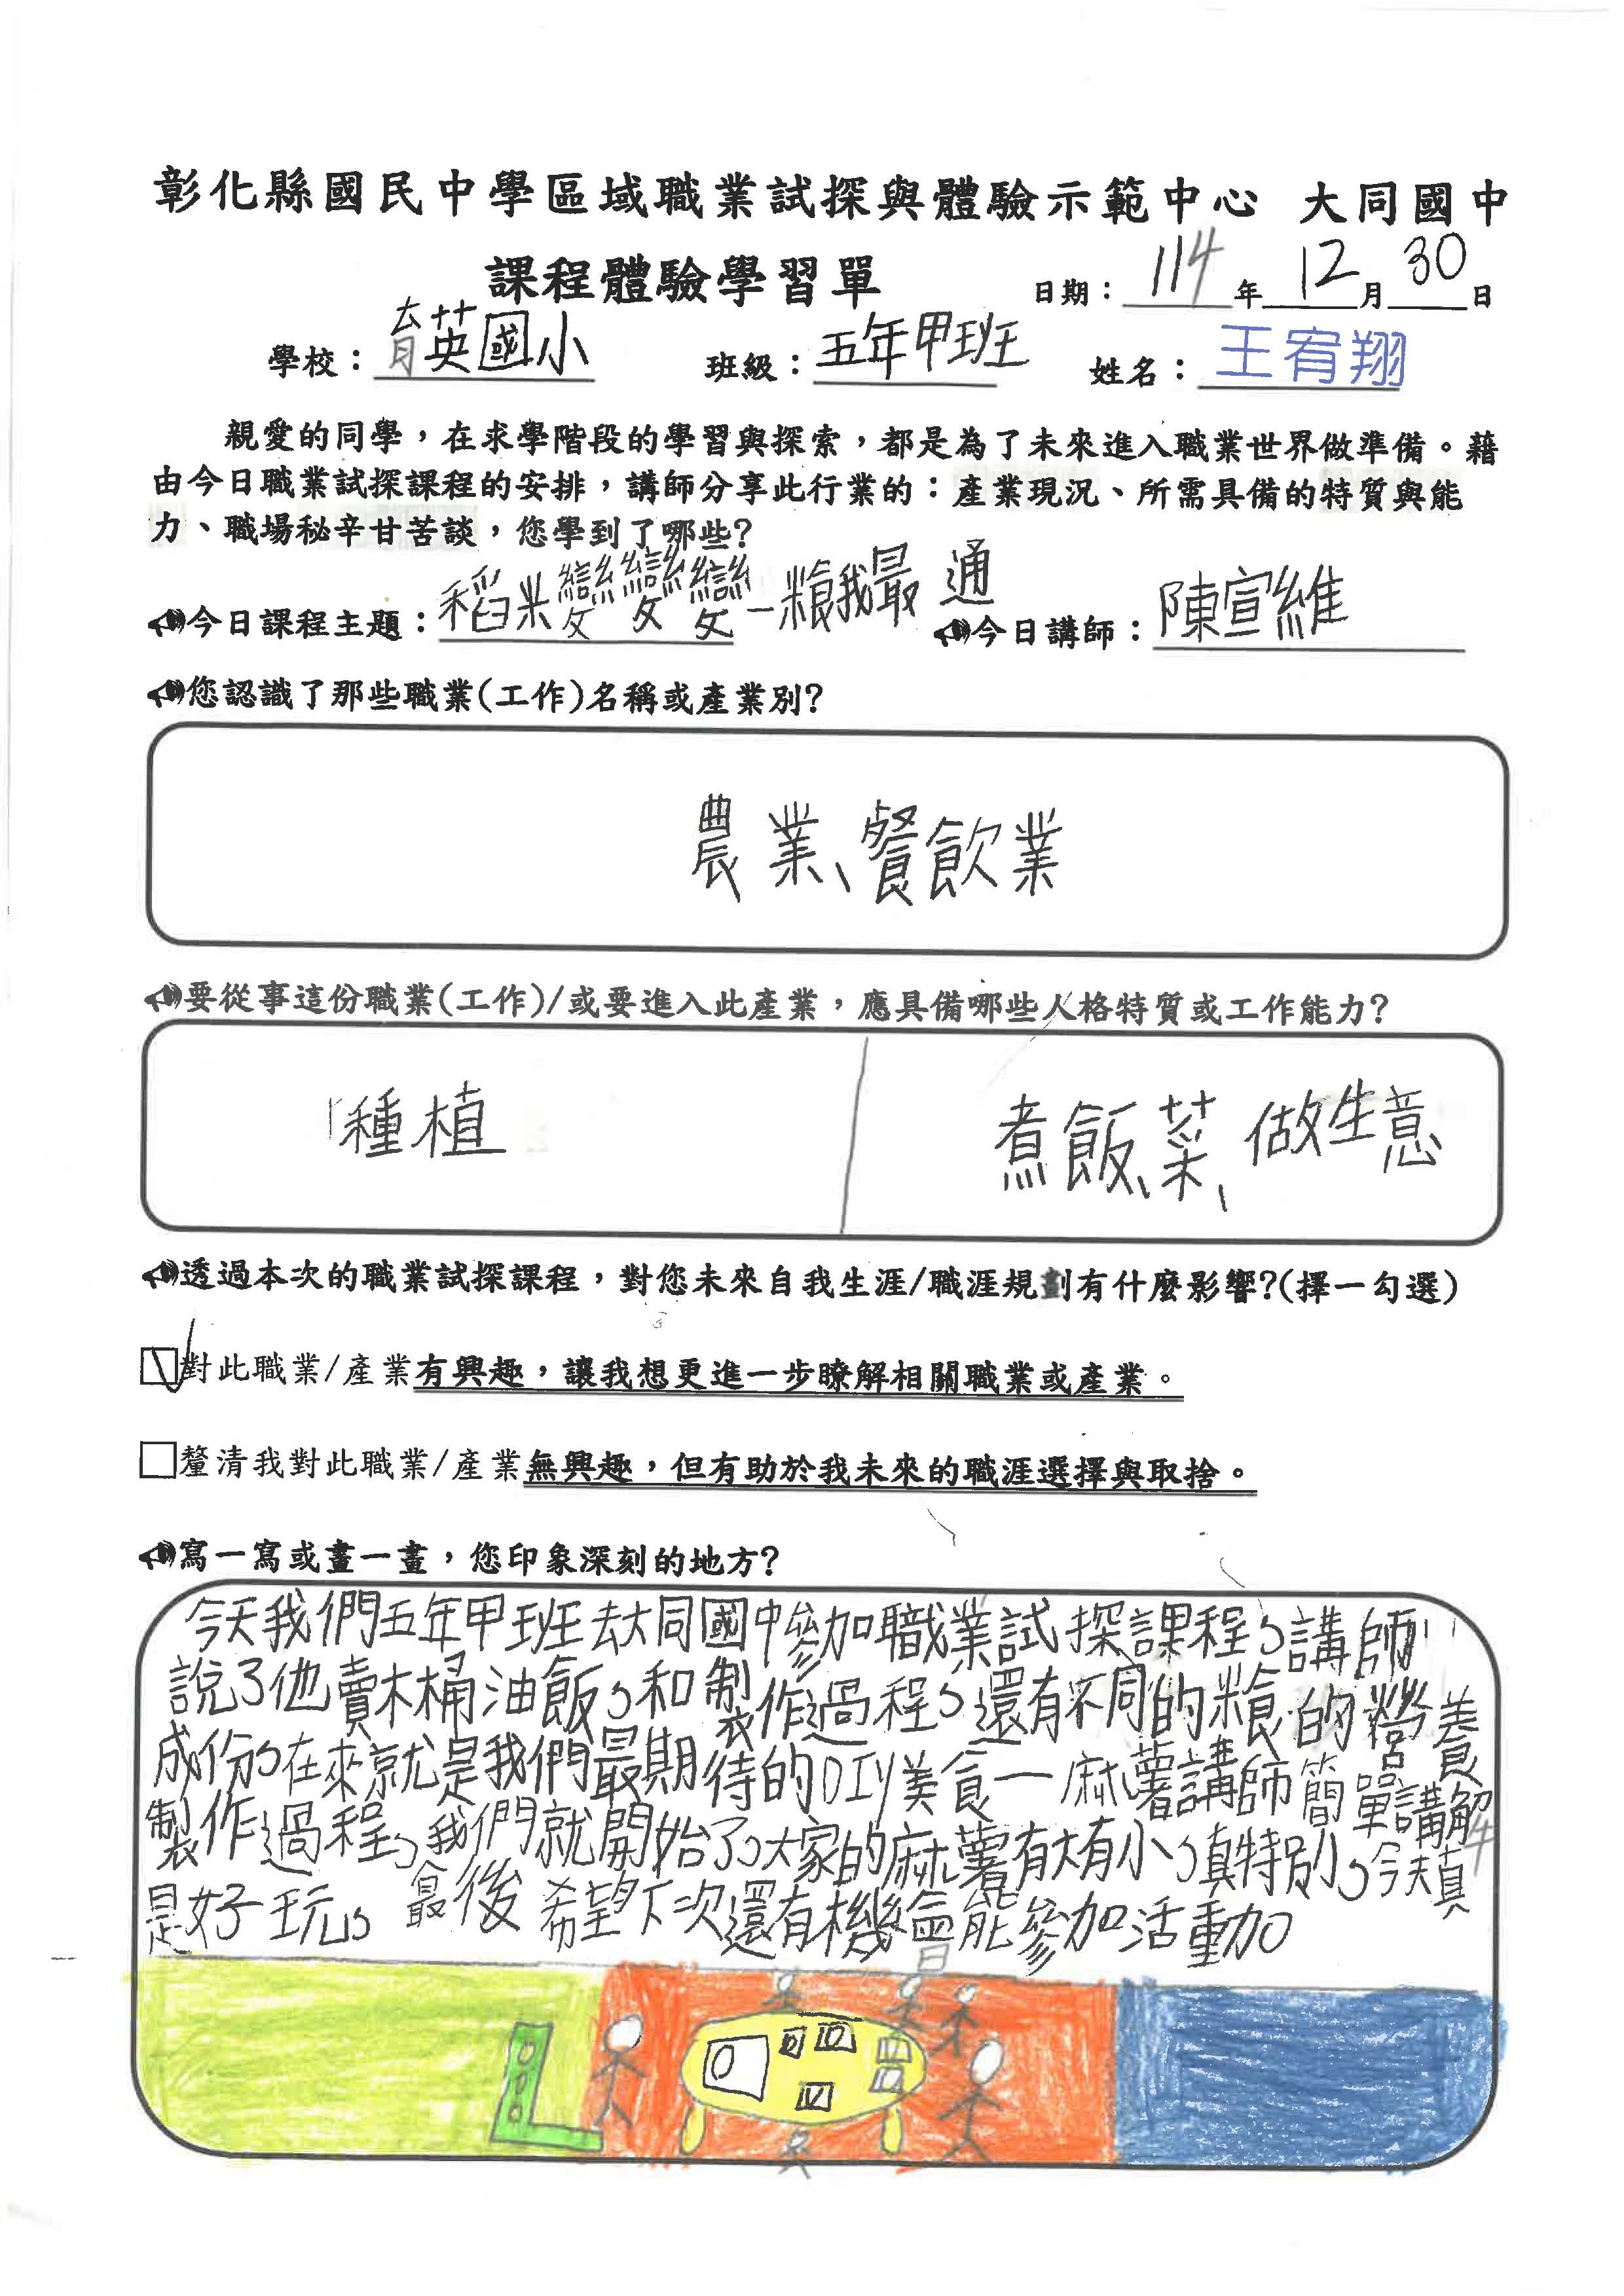 彰化縣國民中學區域職業試探與體驗示範中心 大同國中
課程體驗學習單 日期：114年12月30日
學校：育英國小 班級：五年甲班 姓名：王宥翔
親愛的同學，在求學階段的學習與探索，都是為了未來進入職業世界做準備。藉
由今日職業試探課程的安排，講師分享此行業的：產業現況、所需具備的特質與能
力、職場秘辛甘苦談，您學到了哪些?
今日課程主題：稻米變變變—糧我最通 今日講師：陳宣維
您認識了那些職業(工作)名稱或產業別?
農業、餐飲業
要從事這份職業(工作)/或要進入此產業，應具備哪些人格特質或工作能力?
種植 煮飯、菜、做生意
透過本次的職業試探課程，對您未來自我生涯/職涯規劃有什麼影響?(擇一勾選)
☑對此職業/產業有興趣，讓我想更進一步瞭解相關職業或產業。
□釐清我對此職業/產業無興趣，但有助於我未來的職涯選擇與取捨。
寫一寫或畫一畫，您印象深刻的地方?
今天我們五年甲班去大同國中參加職業試探課程，講師
說了他賣木桶油飯，和製作過程，還有不同的米食的營養
成份，在來就是我們最期待的DIY美食—麻薯講師簡單講解
製作過程，我們就開始了，大家的麻薯有大有小，真特別，今天真
是好玩，最後希望下次還有機會能參加活動。